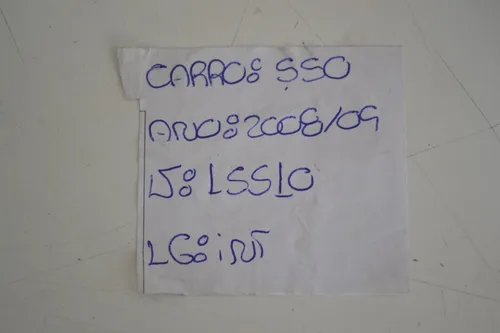 CARRO: SSO
ANO: 2008/09
LS: LSS10
LG: iNT